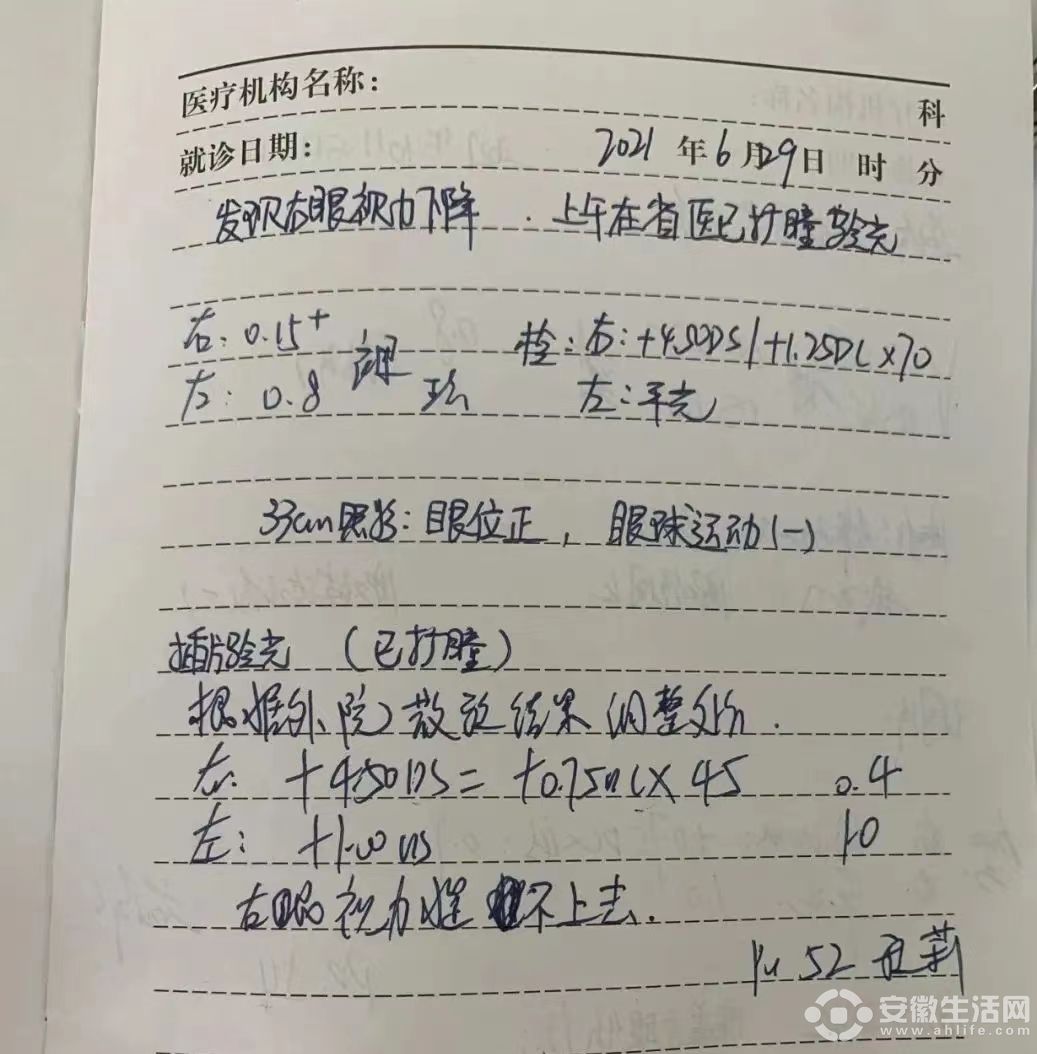 医疗机构名称： 科
就诊日期： 2021 年 6 月 29 日 时 分
发现右眼视力下降 . 上午在省医已扩瞳验光
右: 0.15⁺
左: 0.8
右: +4.50DS/+1.25DC×70
左: 平光
33cm照影: 眼位正, 眼球运动(-)
插片验光 (已扩瞳)
根据外院散 结果调整处方.
右: +4.50DS= +0.75DC×45 0.4
左: +1.00DS 1.0
右眼视力 不上去.
52
安徽生活网
www.ahlife.com